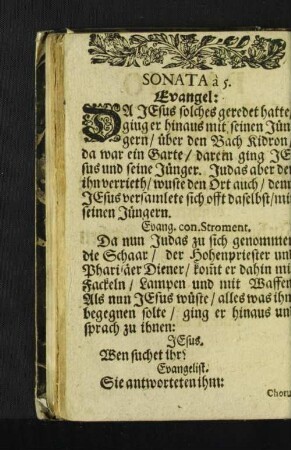 SONATA à 5.
Evangel:
DA JEsus solches geredet hatte/
gieng er hinaus mit seinen Jün
gern/ über den Bach Kidron/
da war ein Garte/ darein ging JE
sus und seine Jünger. Judas aber der
ihn verrieth/ wuste den Ort auch/ denn
JEsus versamlete sich offt daselbst/ mit
seinen Jüngern.
Evang. con. Stroment.
Da nun Judas zu sich genommen
die Schaar/ der Hohenpriester und
Phariſäer Diener/ kom̃t er dahin mit
Fackeln/ Lampen und mit Waffen
Als nun JEsus wüste/ alles was ihm
begegnen solte/ ging er hinaus und
sprach zu ihnen:
JEsus.
Wen suchet ihr?
Evangelist.
Sie antworteten ihm:
Choru